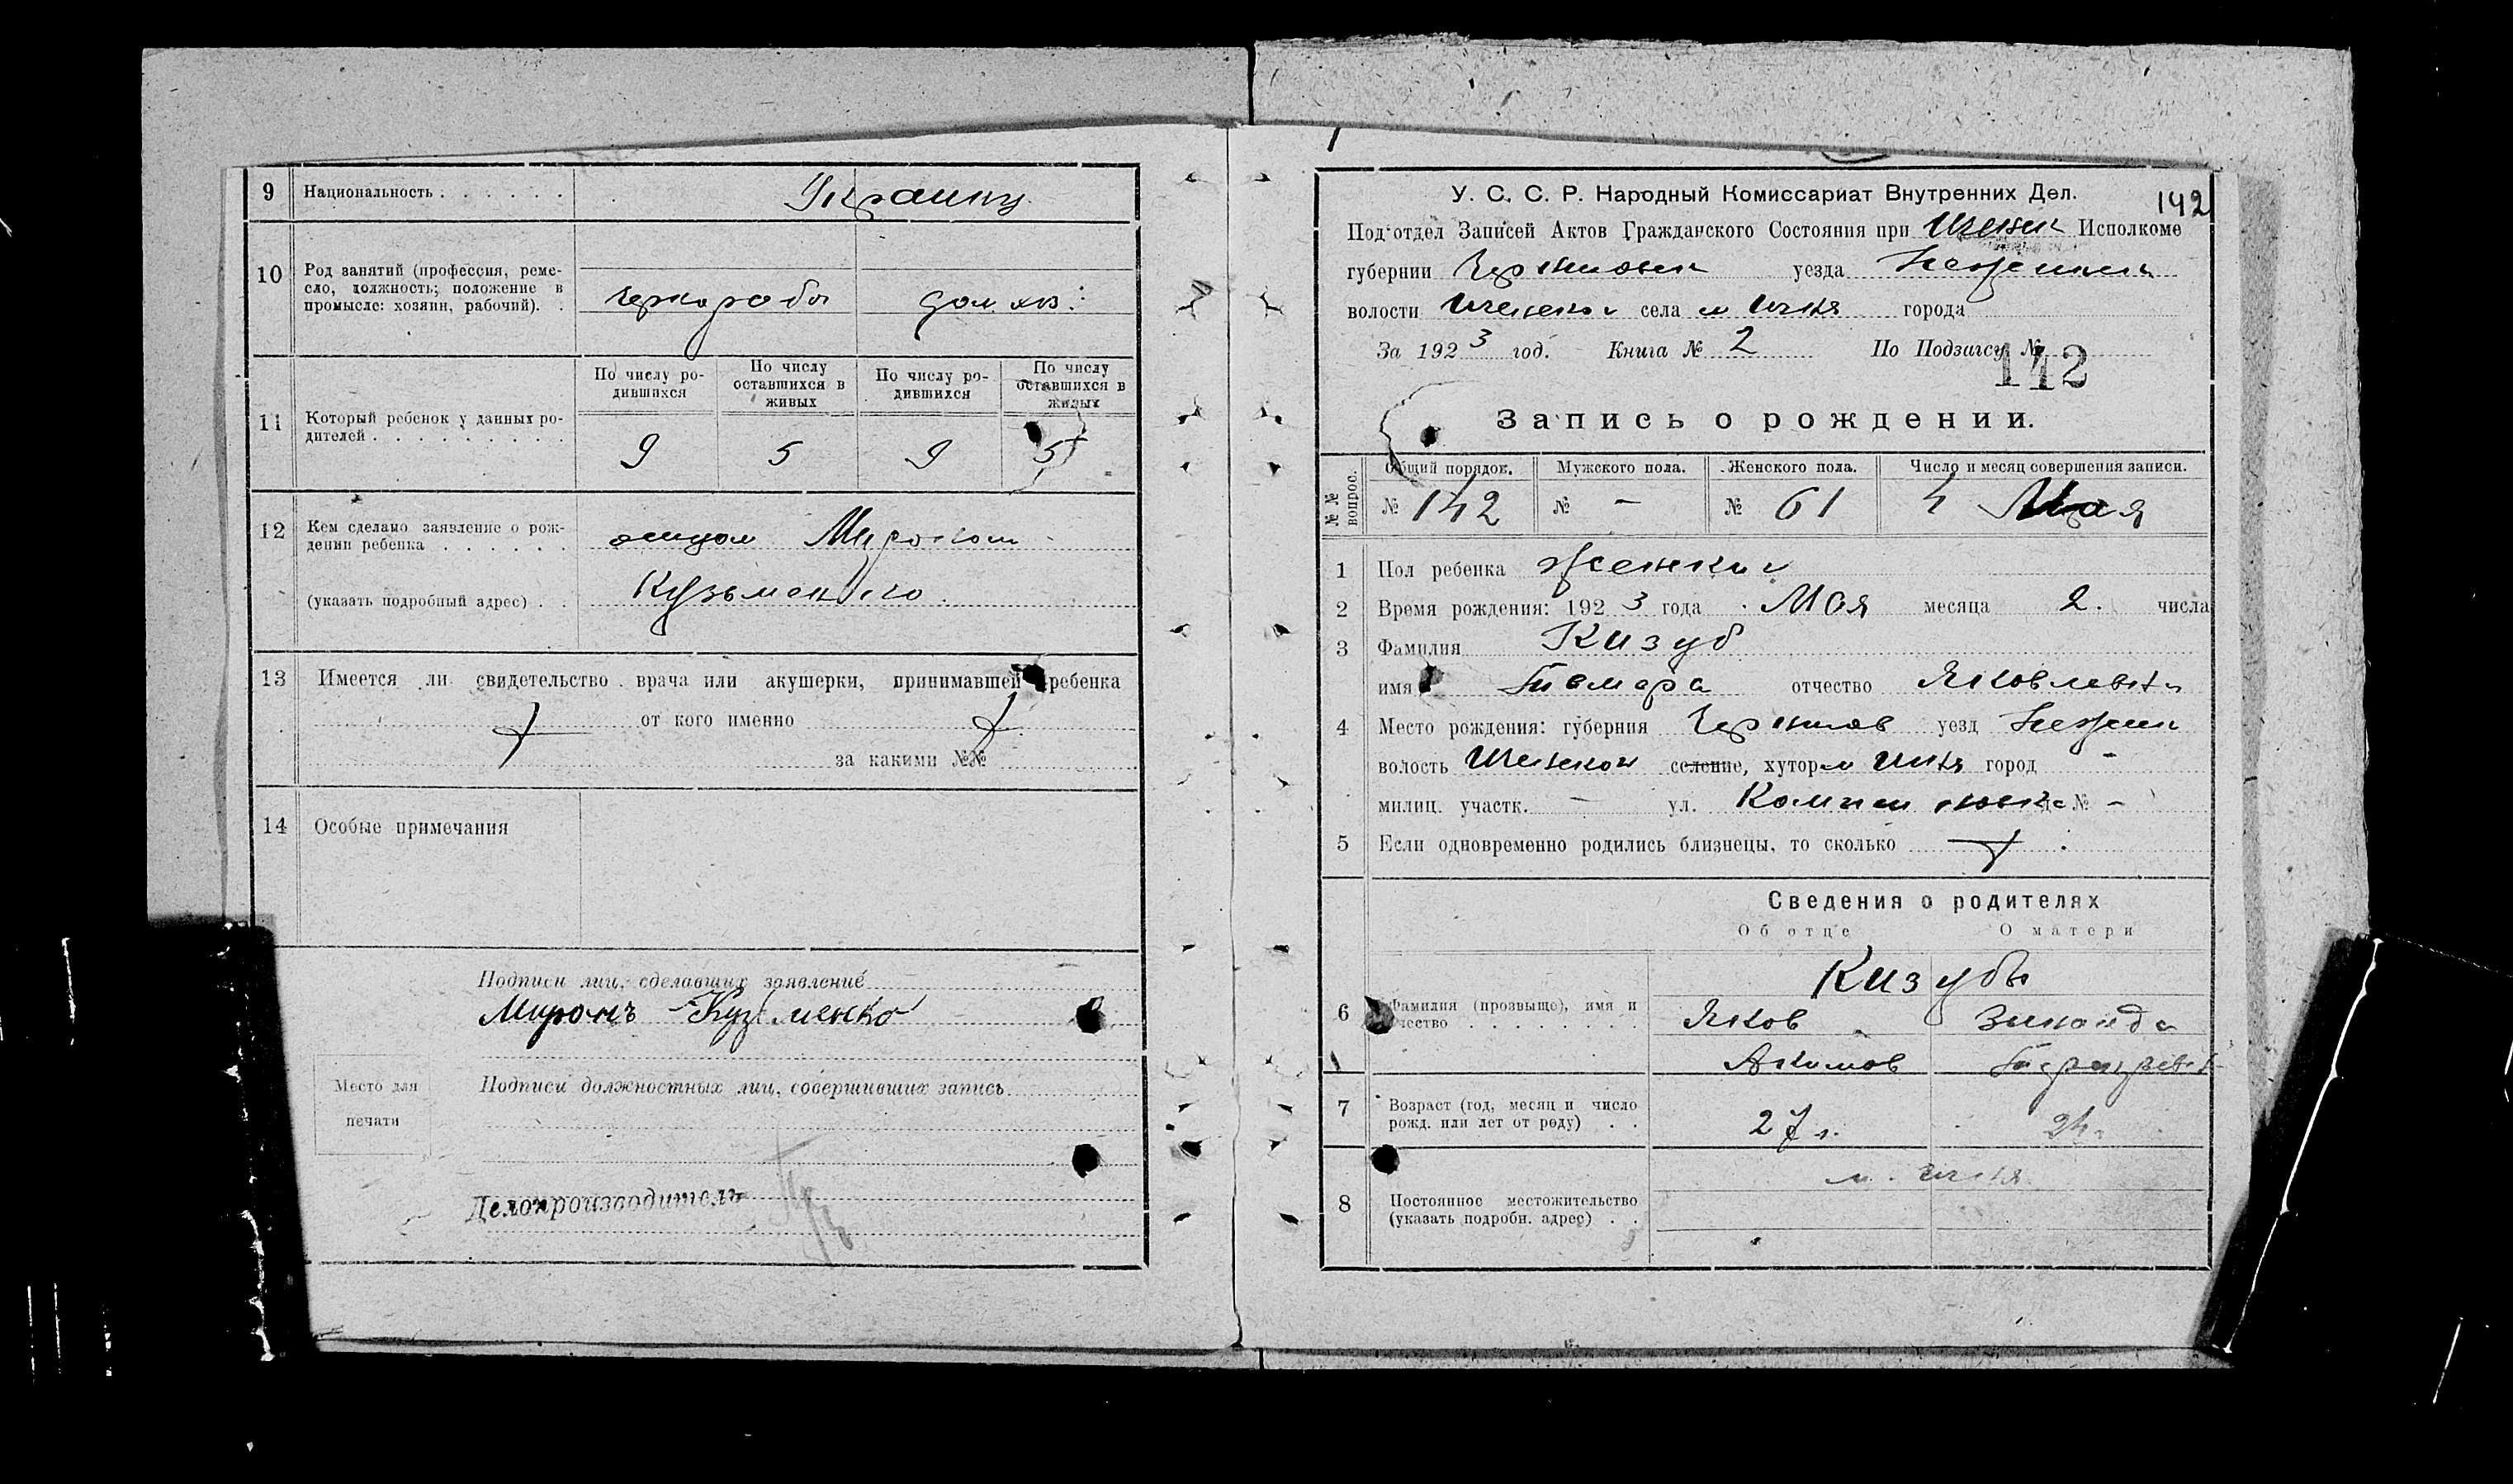 9 Национальность . . . . . . Украинц.
10 Род занятий (профессия, реме-
сло, должность; положение в
промысле: хозяин, рабочий). .
чернорабоч дом. хоз:
11 Который ребенок у данных ро-
дителей . . . . . . . . .
По числу ро-
дившихся
По числу
оставшихся в
живых
По числу ро-
дившихся
По числу
оставшихся в
живых
9 5 9 5
12 Кем сделано заявление о рож-
дении ребенка . . . . . . отцом Мироном
(указать подробный адрес) . . Кузьменко.
13 Имеется ли свидетельство врача или акушерки, принимавшей ребенка
от кого именно
за какими №№
14 Особые примечания
Подписи лиц, сделавших заявление
Миронъ Кузьменко
Место для
печати
Подписи должностных лиц, совершивших запись
Делопроизводитель
142
У. С. С. Р. Народный Комиссариат Внутренних Дел.
Под'отдел Записей Актов Гражданского Состояния при Ичен. Исполкоме
губернии Черниговск уезда Нежинск
волости Иченской села м Ичня города
За 1923 год. Книга № 2 По Подзагсу №
142
Запись о рождении.
№№ вопрос.
Общий порядок. Мужского пола. Женского пола. Число и месяц совершения записи.
№ 142 № – № 61 4 Мая
1 Пол ребенка Женский
2 Время рождения: 1923 года Мая месяца 2. числа
3 Фамилия Кизуб
имя Тамара отчество Яковлевна
4 Место рождения: губерния Чернигов уезд Нежин
волость Иченской селение, хутор м Ичня город –
милиц. участк. – ул. № –
5 Если одновременно родились близнецы, то сколько
Сведения о родителях
Об отце О матери
Кизубы
6 Фамилия (прозвище), имя и
чество . . . . . . . .
Яков Зинаида
Акимов
7 Возраст (год, месяц и число
рожд. или лет от роду) . .
27 г. 24 г
8 Постоянное местожительство
(указать подробн. адрес) . .
м. Ичня